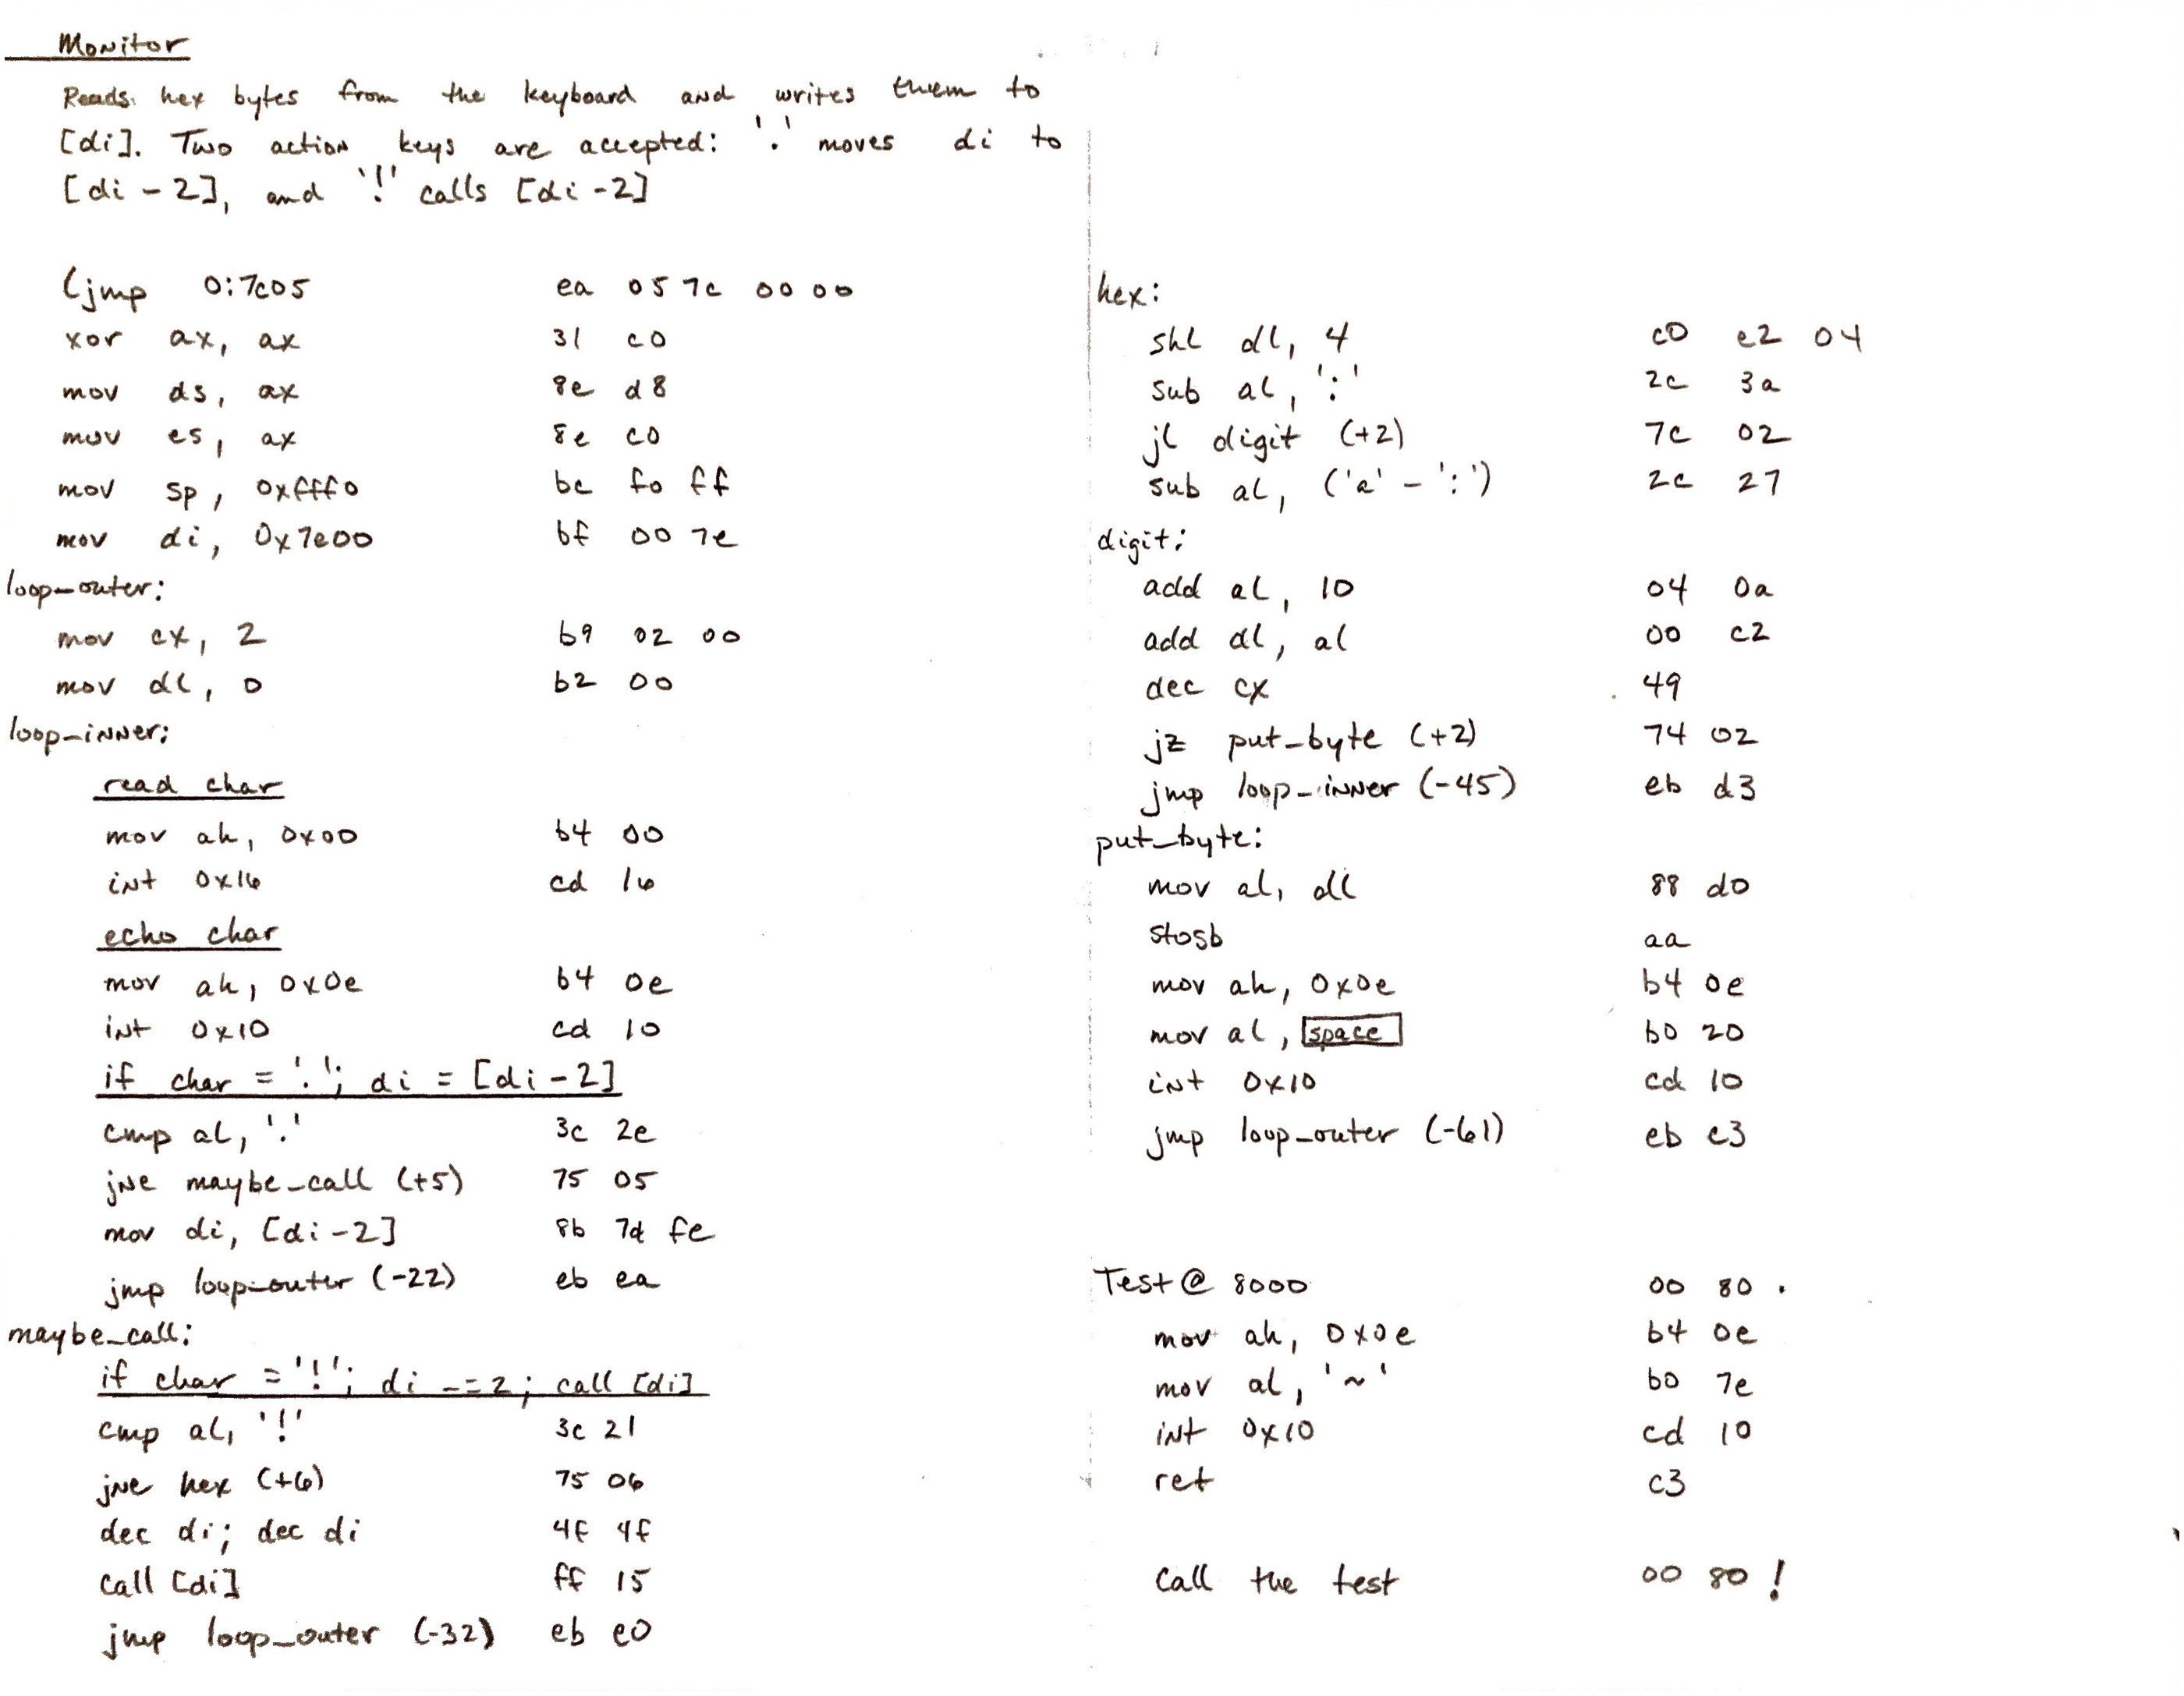 Monitor
Reads hex bytes from the keyboard and writes them to
[di]. Two action keys are accepted: '.' moves di to
[di - 2], and '!' calls [di - 2]
(jmp 0:7c05 ea 05 7c 00 00
xor ax, ax 31 c0
mov ds, ax 8e d8
mov es, ax 8e c0
mov sp, 0xfff0 bc f0 ff
mov di, 0x7e00 bf 00 7e
loop-outer:
mov cx, 2 b9 02 00
mov dl, 0 b2 00
loop-inner:
read char
mov ah, 0x00 b4 00
int 0x16 cd 16
echo char
mov ah, 0x0e b4 0e
int 0x10 cd 10
if char = '.'; di = [di - 2]
cmp al, '.' 3c 2e
jne maybe-call (+5) 75 05
mov di, [di - 2] 8b 7d fe
jmp loop-outer (-22) eb ea
maybe_call:
if char = '!'; di -= 2; call [di]
cmp al, '!' 3c 21
jne hex (+6) 75 06
dec di; dec di 4f 4f
call [di] ff 15
jmp loop_outer (-32) eb e0
hex:
shl dl, 4 c0 e2 04
sub al, ':' 2c 3a
jl digit (+2) 7c 02
sub al, ('a' - ':') 2c 27
digit:
add al, 10 04 0a
add dl, al 00 c2
dec cx 49
jz put-byte (+2) 74 02
jmp loop-inner (-45) eb d3
put_byte:
mov al, dl 88 d0
stosb aa
mov ah, 0x0e b4 0e
mov al, space b0 20
int 0x10 cd 10
jmp loop_outer (-61) eb c3
Test @ 8000 00 80 .
mov ah, 0x0e b4 0e
mov al, '~' b0 7e
int 0x10 cd 10
ret c3
Call the test 00 80 !